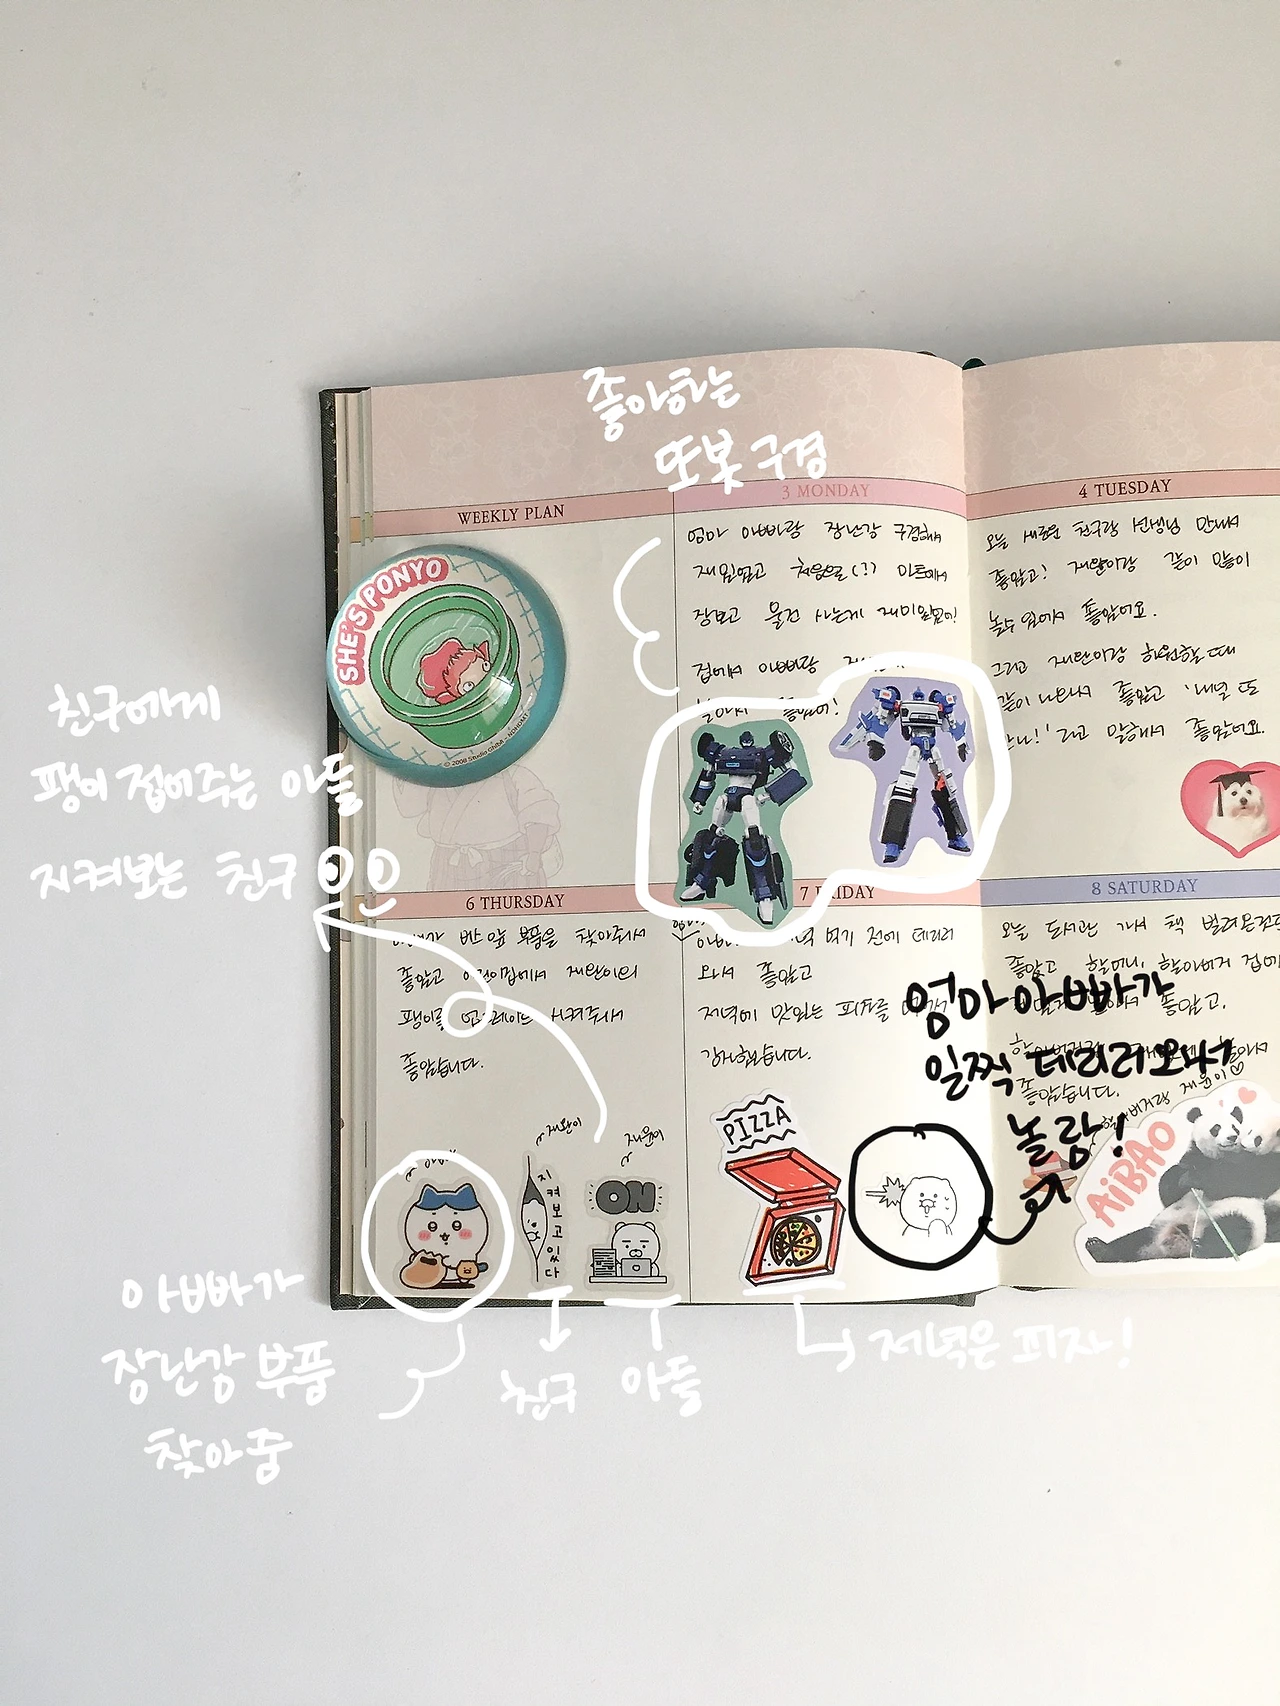 좋아하는
또봇 구경
WEEKLY PLAN
3 MONDAY
엄마 아빠랑 장난감 구경해서
재밌었고 처음으로(?) 마트에서
장보고 물건 사는게 재미있었어!
집에서 아빠랑
놀아서 좋았어!
4 TUESDAY
오늘 새로운 친구랑 선생님 만나서
좋았고! 재완이랑 같이 많이
놀수 있어서 좋았어요.
그리고 재완이랑 하원할 때
같이 나와서 좋았고 '내일 또
만나!' 라고 말해서 좋았어요.
SHE'S PONYO
© 2008 Studio Ghibli - NDHDMT
친구에게
팽이 접어주는 아들
지켜보는 친구
6 THURSDAY
아빠가 버스 앞 부품을 찾아주셔서
좋았고 어린이집에서 재완이의
팽이를 업그레이드 시켜주셔서
좋았습니다.
재완이
재윤이
지켜보고있다
OH
7 FRIDAY
먹기 전에 데리러
와서 좋았고
저녁에 맛있는 피자를
감사했습니다.
PIZZA
엄마 아빠가
일찍 데리러 와서
놀람!
8 SATURDAY
오늘 도서관 가서 책 빌려온것도
좋았고 할머니, 할아버지 집에
좋았고.
좋았습니다.
재윤이♡
AiBAO
아빠가
장난감 부품
찾아줌
친구
아들
저녁은 피자!